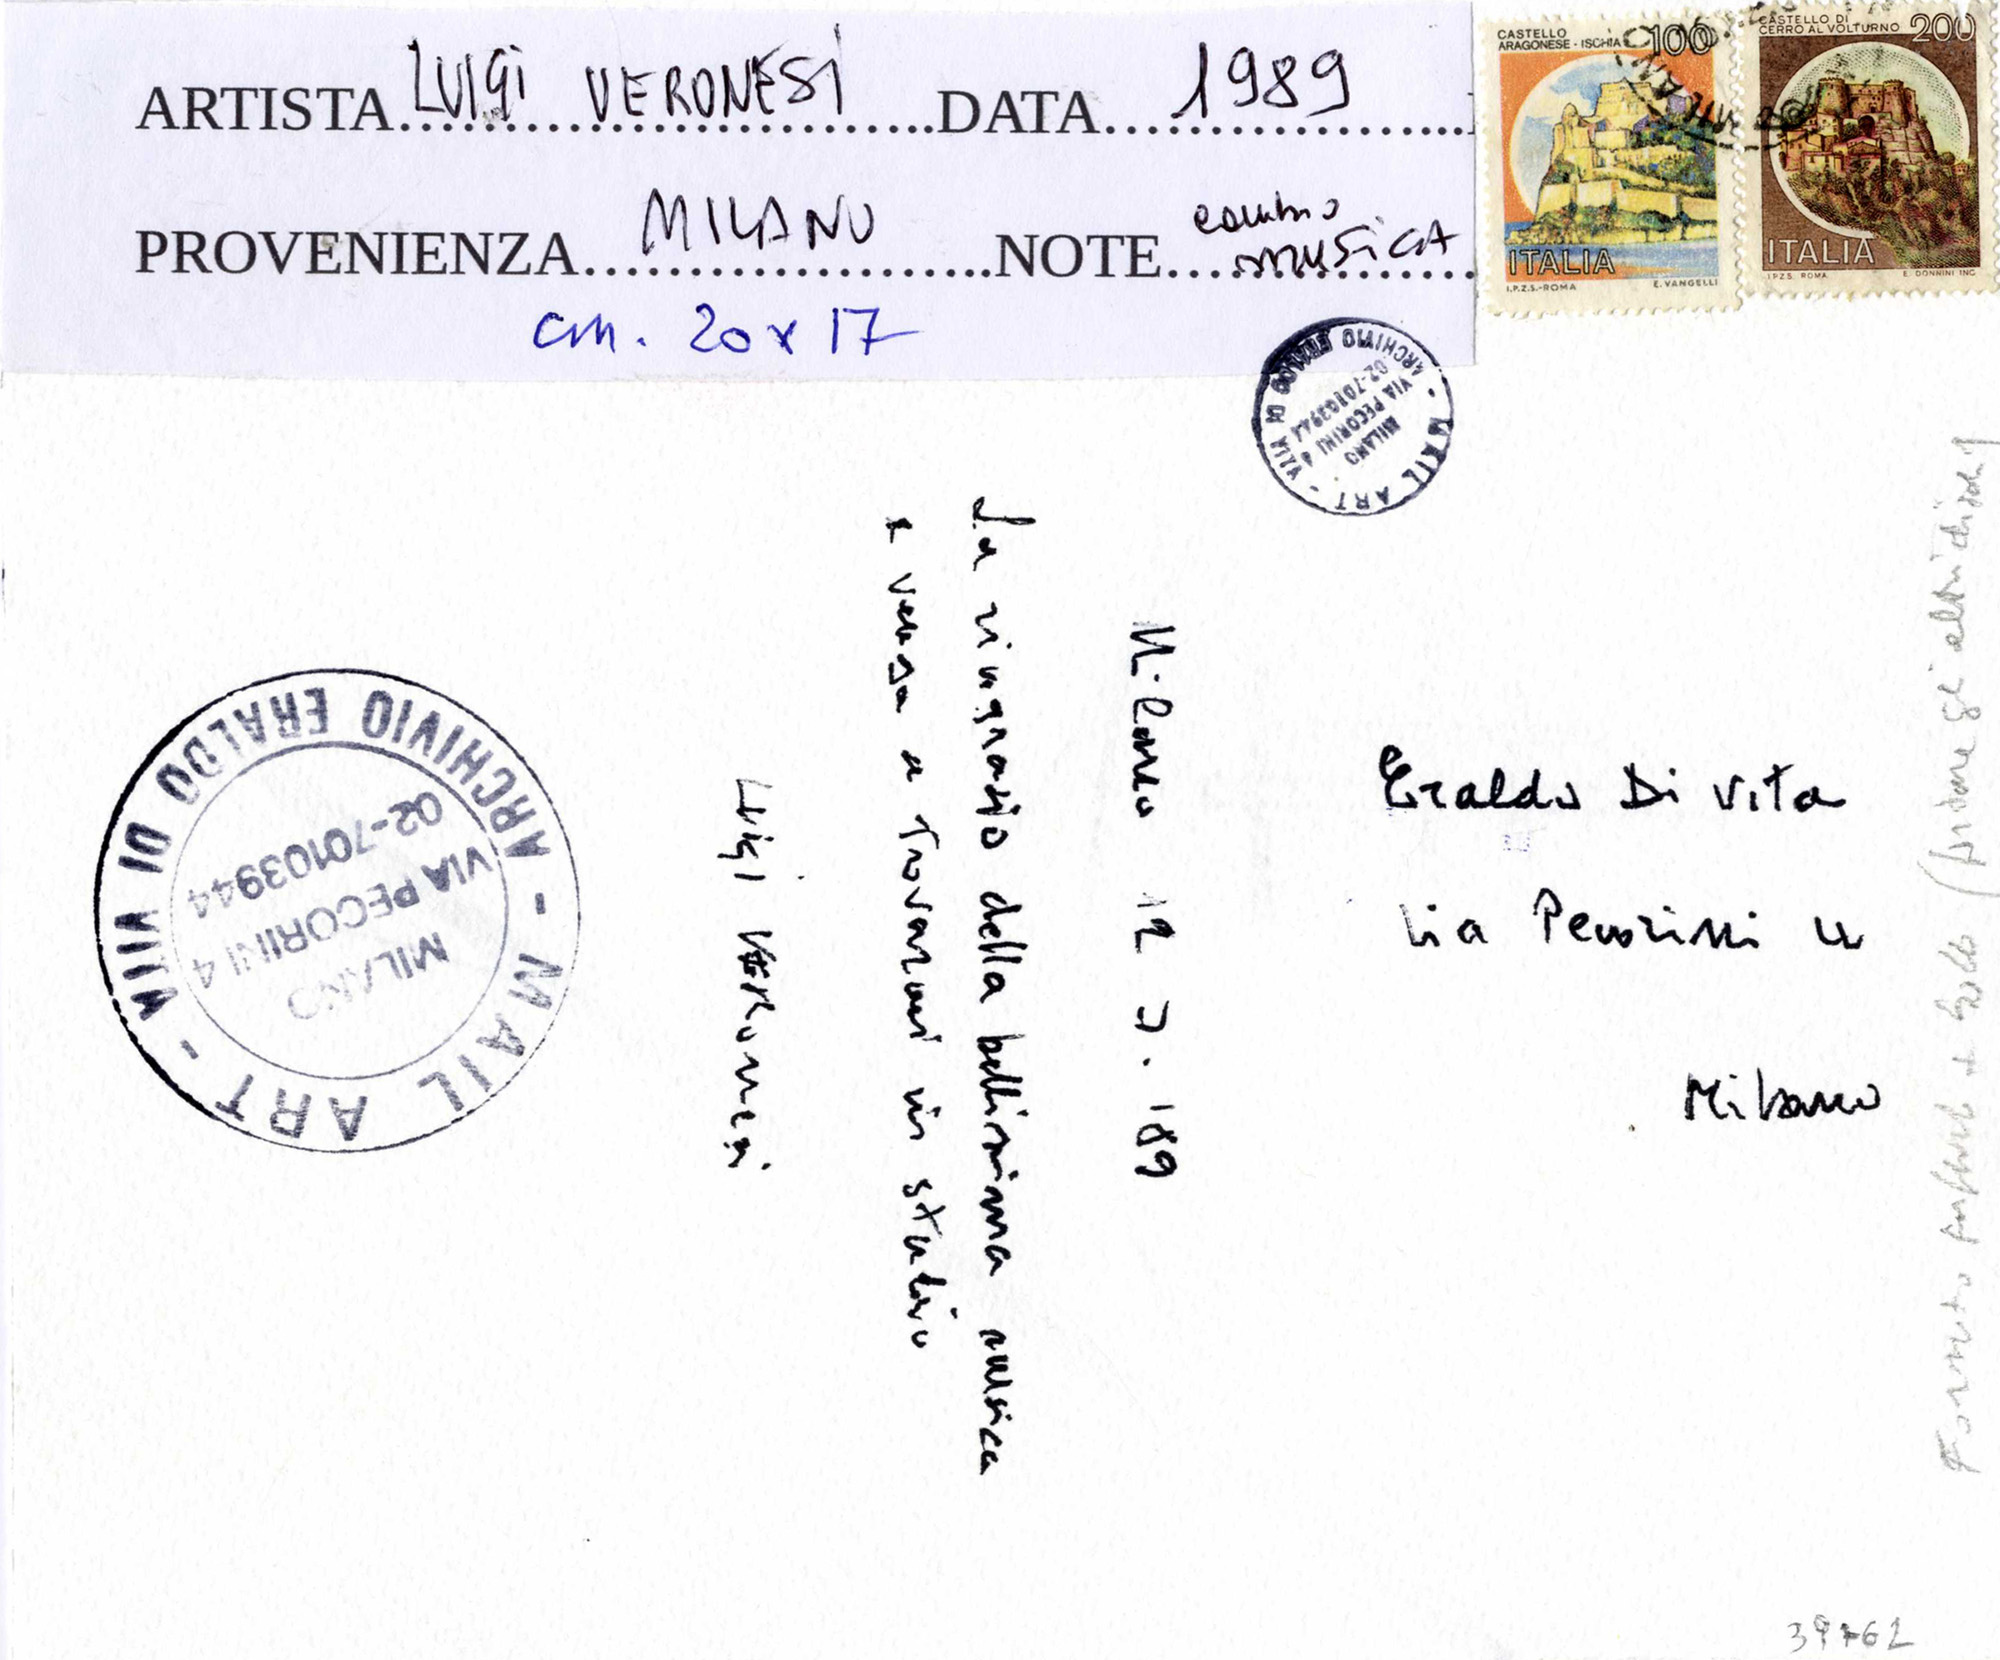 ARTISTA LUIGI VERONESI DATA 1989
PROVENIENZA MILANO NOTE cambio MUSICA
cm. 20 x 17
CASTELLO
ARAGONESE - ISCHIA 100
ITALIA
I.P.Z.S.-ROMA E. VANGELLI
CASTELLO DI
CERRO AL VOLTURNO 200
ITALIA
I.P.Z.S. ROMA E. DONNINI INC
MAIL ART - VITA DI ARCHIVIO ERALDO
02-70103944
VIA PECORINI 4
MILANO
Milano 12 2. 189
La ringrazio della bellissima musica
e venga a trovarmi in studio
Luigi Veronesi
ARCHIVIO ERALDO DI VITA - MAIL ART -
02-70103944
VIA PECORINI 4
MILANO
Eraldo Di Vita
Via Pecorini 4
Milano
Formato
gli altri